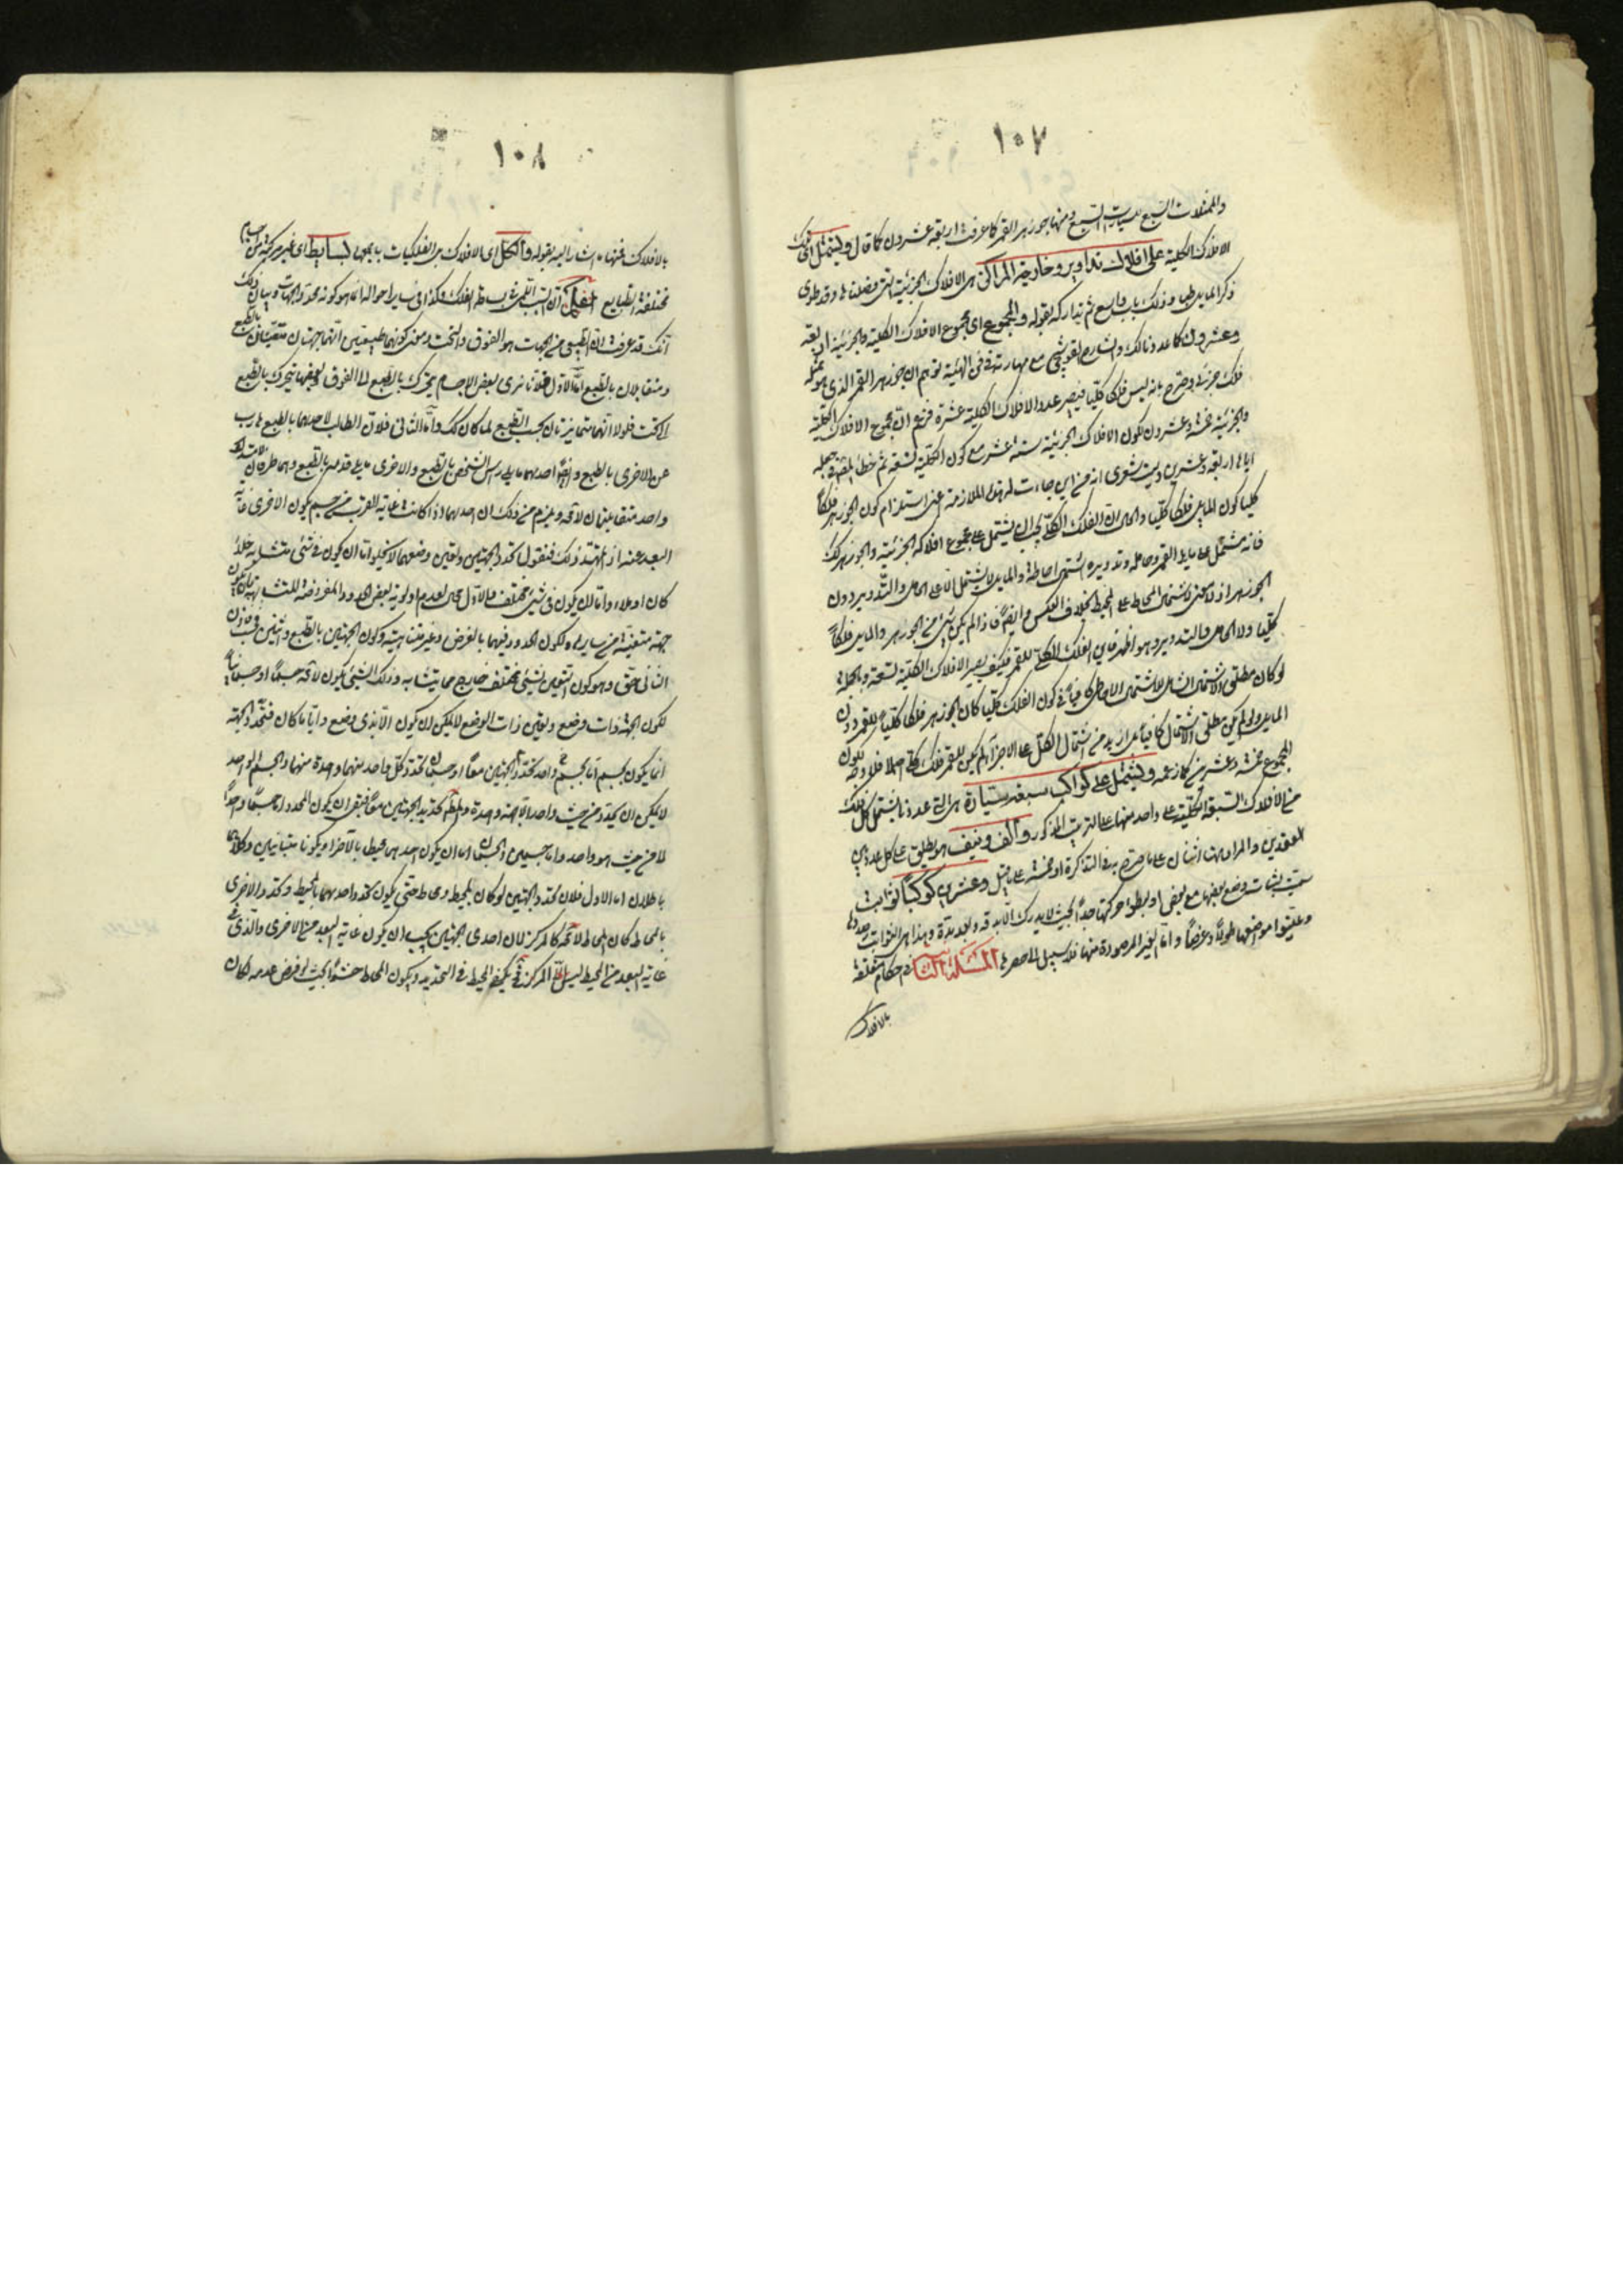 ١٠٧
والممثلات السبع للسيارات السبع ومنها جوزهر القمر كما عرفت اربعة عشرون كما قال ويشتمل
الافلاك الكلية على افلاك تداوير وخارجة المراكز هى الافلاك الجزئية التى فصلناها وقد طوى
ذكر المايل طيا وذلك ثم تداركه بقوله والمجموع اى مجموع الافلاك الكلية والجزئية اربعة
وعشرون كما عددنا لك والشارح القوشجى مع مهارته فى فن الهيئة توهم ان جوزهر القمر الذى هو ممثله
فلك جزئى وصرح بانه ليس فلكا كليا فيصير عدد الافلاك الكلية عشرة فزعم ان مجموع الافلاك الكلية
والجزئية خمسة وعشرون لكون الافلاك الجزئية ستة عشر مع كون الكلية تسعة ثم خطأ المصنف فى جعله
اياها اربعة وعشرين وليت شعرى انه من اين جاءت له هذه الملازمة اعنى استلزام كون الجوزهر فلكا
كليا كون المايل فلكا كليا والحال ان الفلك الكلى يجب ان يشتمل على مجموع افلاكه الجزئية والجوزهر كذلك
فانه مشتمل على مايل القمر وحامله وتدويره اشتمال احاطة والمايل لا يشتمل الا على الحامل والتدوير دون
الجوزهر اذ لا معنى لاشتمال المحاط على المحيط بخلاف العكس وايضا فاذا لم يكن شئ من الجوزهر والمايل فلكا
كليا ولا الحامل والتدوير وهو اظهر فاين الفلك الكلى للقمر فكيف يصير الافلاك الكلية تسعة وبالجملة
لو كان مطلق الاشتمال الشامل للاشتمال الاحاطى كافيا فى كون الفلك كليا كان الجوزهر فلكا كليا للقمر دون
المايل ولو لم يكن مطلق الاشتمال كافيا بل اريد من اشتمال الكل على الاجزاء لم يكن للقمر فلك كلى اصلا فلا وجه لكون
المجموع خمسة وعشرين كما زعمه ويشتمل على كواكب سبعة سيارة هى التى عددنا يشتمل كل فلك
من الافلاك السبعة الكلية على واحد منها على الترتيب المذكور والف ونيف هو يطلق على كل عدد بين
العقدين والمراد ههنا اثنان على ما صرح به فى التذكرة او خمسة على ما قيل وعشرين كوكبا ثوابت
سميت لثبات وضع بعضها مع بعض او لبطؤ حركتها جدا بحيث لا يدرك الا بدقة وبعد مدة وهذا هى الثوابت
وعينوا مواضعها طولا وعرضا واما الغير المرصودة منها فلا سبيل الى حصرها المسئلة الثانية فى احكام متعلقة
بالافلاك
١٠٨
بالافلاك فمنها ما اشار اليه بقوله والكل اى الافلاك بل الفلكيات باجمعها بسايط اى غير مركبة من اجسام
مختلفة الطبايع اعلم ان السبب اللمى فى بساطة الفلك وكذا فى ساير احواله انما هو كونه محدد الجهات وبيان ذلك
انك قد عرفت ان الطبيعى من الجهات هو الفوق والتحت ومعنى كونهما طبيعيتين انهما جهتان متعينتان بالطبع
ومتقابلان بالطبع اما الاول فلانا نرى بعض الاجسام يتحرك بالطبع الى الفوق وبعضها يتحرك بالطبع
الى التحت فلولا انهما متمايزتان بحسب الطبع لما كان كذلك واما الثانى فلان الطالب لاحديهما بالطبع هارب
عن الاخرى بالطبع وايضا احديهما ما يلى راس الشخص بالطبع والاخرى ما يلى قدميه بالطبع وهما طرفان لامتداد
واحد متقابلتان لا محة ويلزم من ذلك ان احديهما اذا كانت غاية القرب من جسم يكون الاخرى غاية
البعد عنه اذا تمهد ذلك فنقول تحدد الجهتين وتعين وضعهما لا يخلو اما ان يكون فى شئ متشابه خلأ
كان او ملاء واما ان يكون فى شئ مختلف والاول محال لعدم اولوية بعض الحدود المفروضة للمتشابه بان يكون
جهة متعينة من سايره ولكون الحدود فيها بالفرض وغير متناهية وكون الجهتين بالطبع واثنين فحسب فاذن
الثانى حق وهو كون التعين لشئ مختلف خارج مما يتشابه وذلك الشئ يكون لا محة جسما او جسمانيا
لكون الجهة ذات وضع وتعين ذات الوضع لا يمكن ان يكون الا بذى وضع وايا ما كان فتحدد الجهة
انما يكون بجسم اما بجسم واحد تحدد الجهتين معا او جسمان تحدد كل واحد منهما واحدة منهما والجسم الواحد
لا يمكن ان يحدد من حيث واحد الا جهة واحدة والمطلوب تحديد الجهتين معا فبقى ان يكون المحدد اما جسما واحدا
لا من حيث هو واحد واما جسمين والجسمان اما ان يكون احدهما محيطا بالآخر او يكونا متباينين وكلاهما
باطلان اما الاول فلان تحدد الجهتين لو كان بمحيط ومحاط حتى يكون تحدد احديهما بالمحيط وتحدد الاخرى
بالمحاط كان المحاط لا محة كالمركز لان احدى الجهتين يجب ان يكون غاية البعد من الاخرى والذى فى
غاية البعد من المحيط ليس الا المركز فح يكفى المحيط فى التحديد ويكون المحاط حشوا بحيث لو فرض عدمه لكان